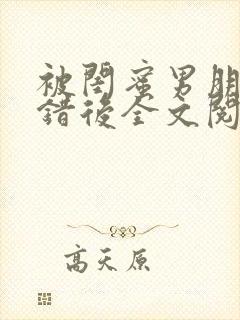 被閨蜜男朋
錯後全文閱
高天原